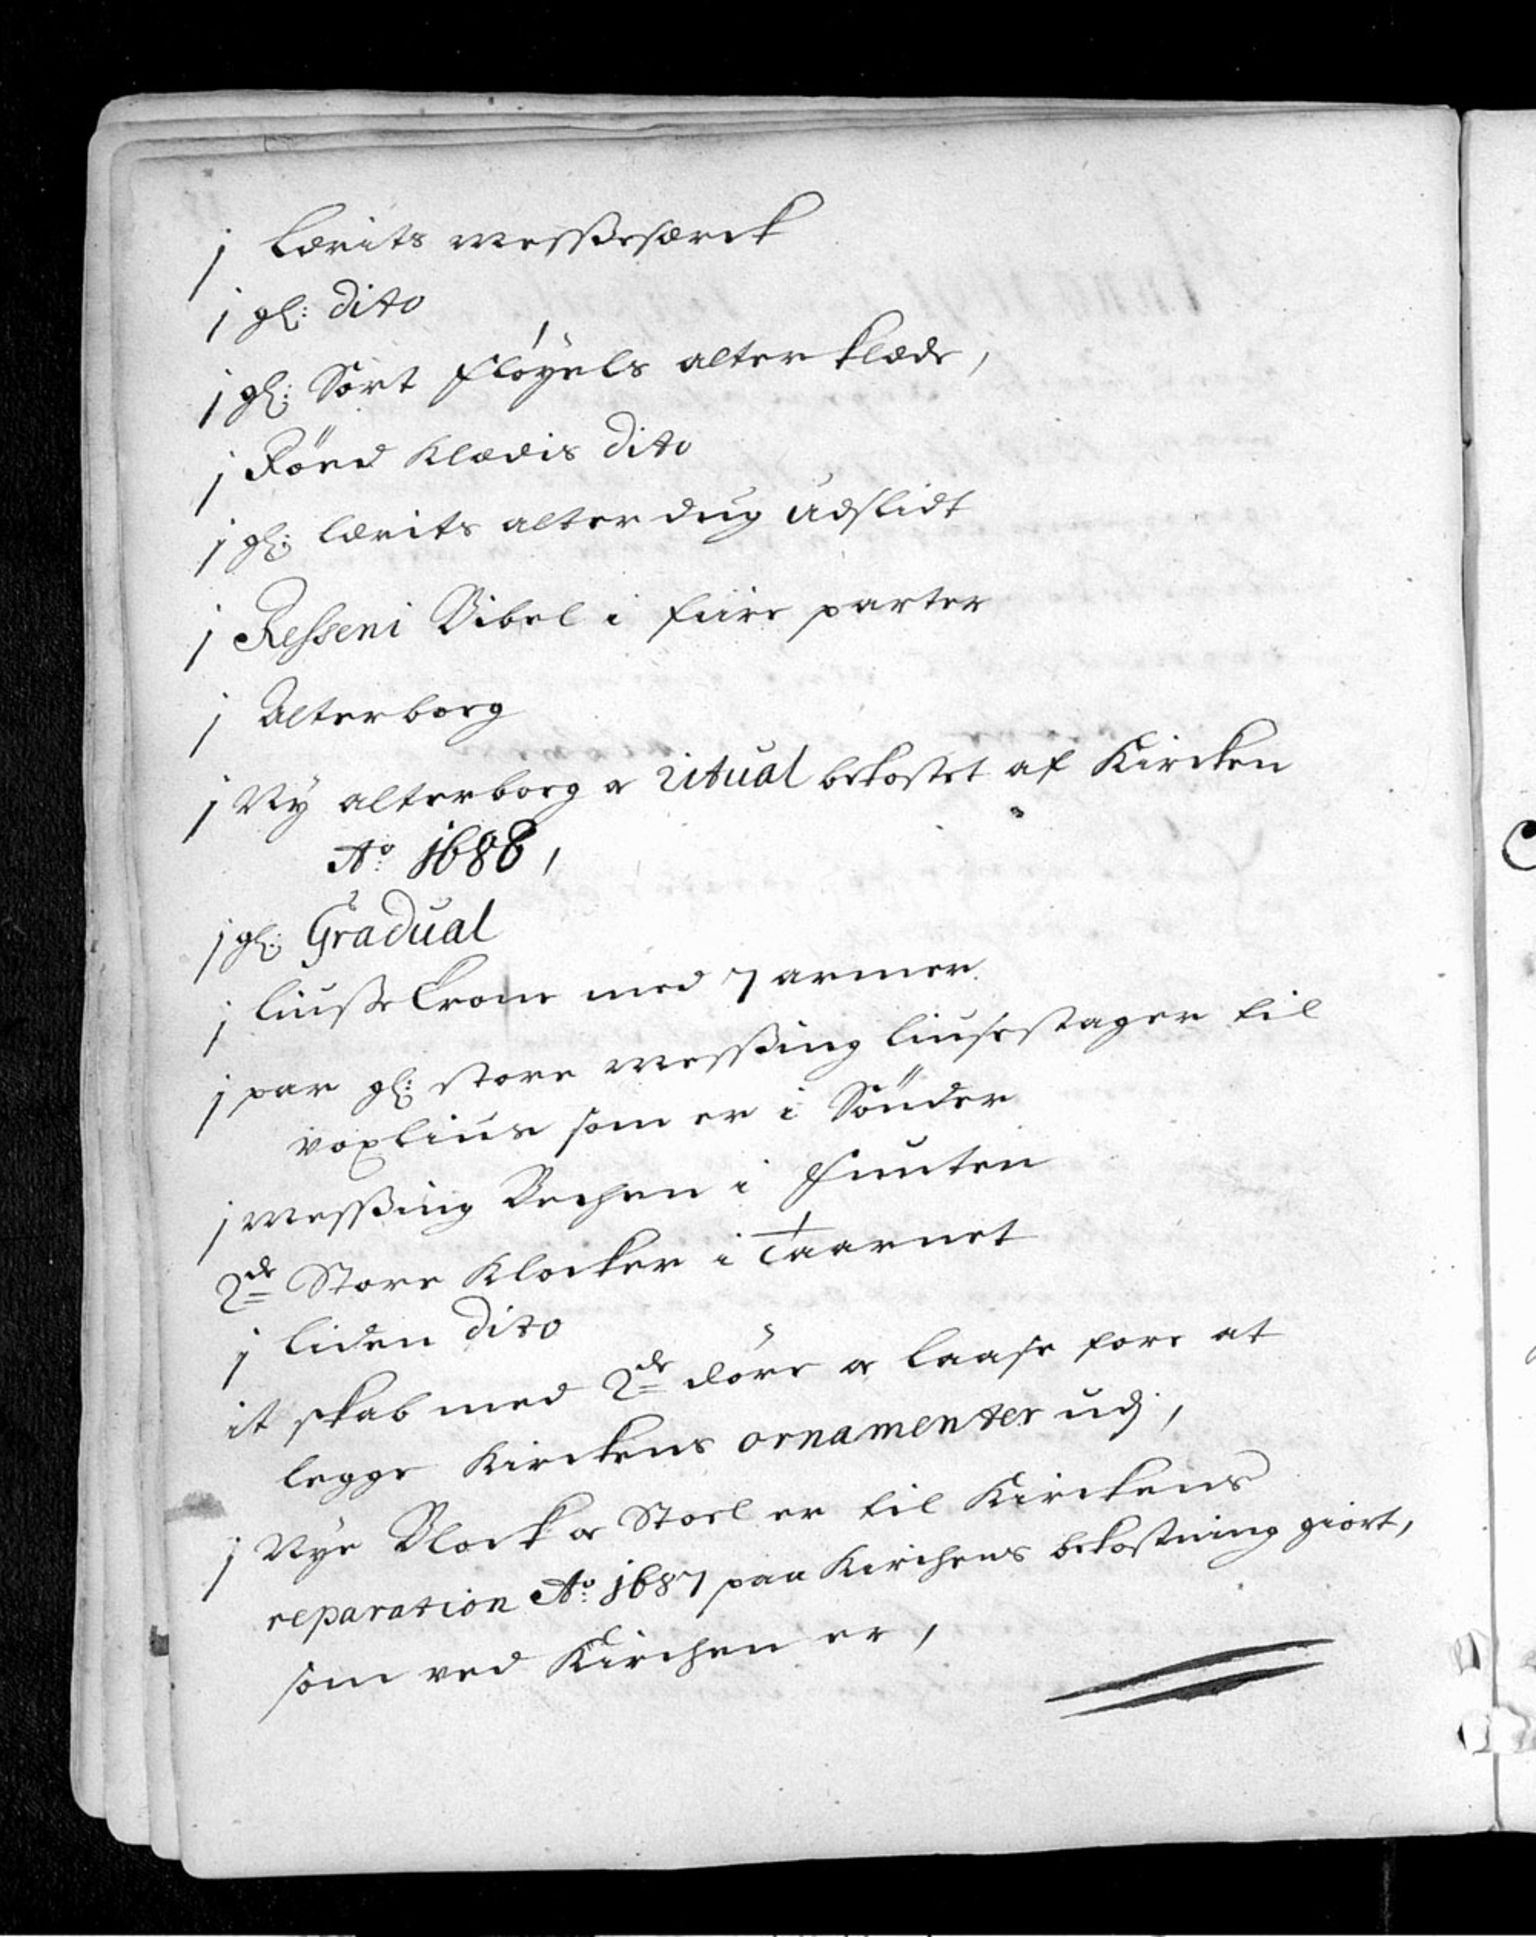 j Lærits Messesærck
j gl: dito
j gl: Sort Fløyels alter klæde,
j Röed Klædis dito
j gl: lærits alter dug udslidt
j Resseni Bibel i fiire parter
j Alterborg
j Ny alterborg oc ritual bekostet af Kircken
Ao: 1688,
j gl: Gradual
j liusse Crone med 7 armer
j par gl: store messing liusestager til
voxlius som er i Sönder
j messing Bechen i Funten
2de Store Klocker i Taarnet
j liden dito
it skab med 2de döre oc laase fore at
legge Kirckens ornamenter udj,
j Nye Block oc Stoel er til Kirckens
reparation Ao: 1687 paa Kirchens bekostning giort,
som ved Kirchen er,